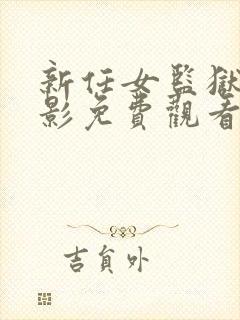 新任女監獄
影免費觀看
吉貟外